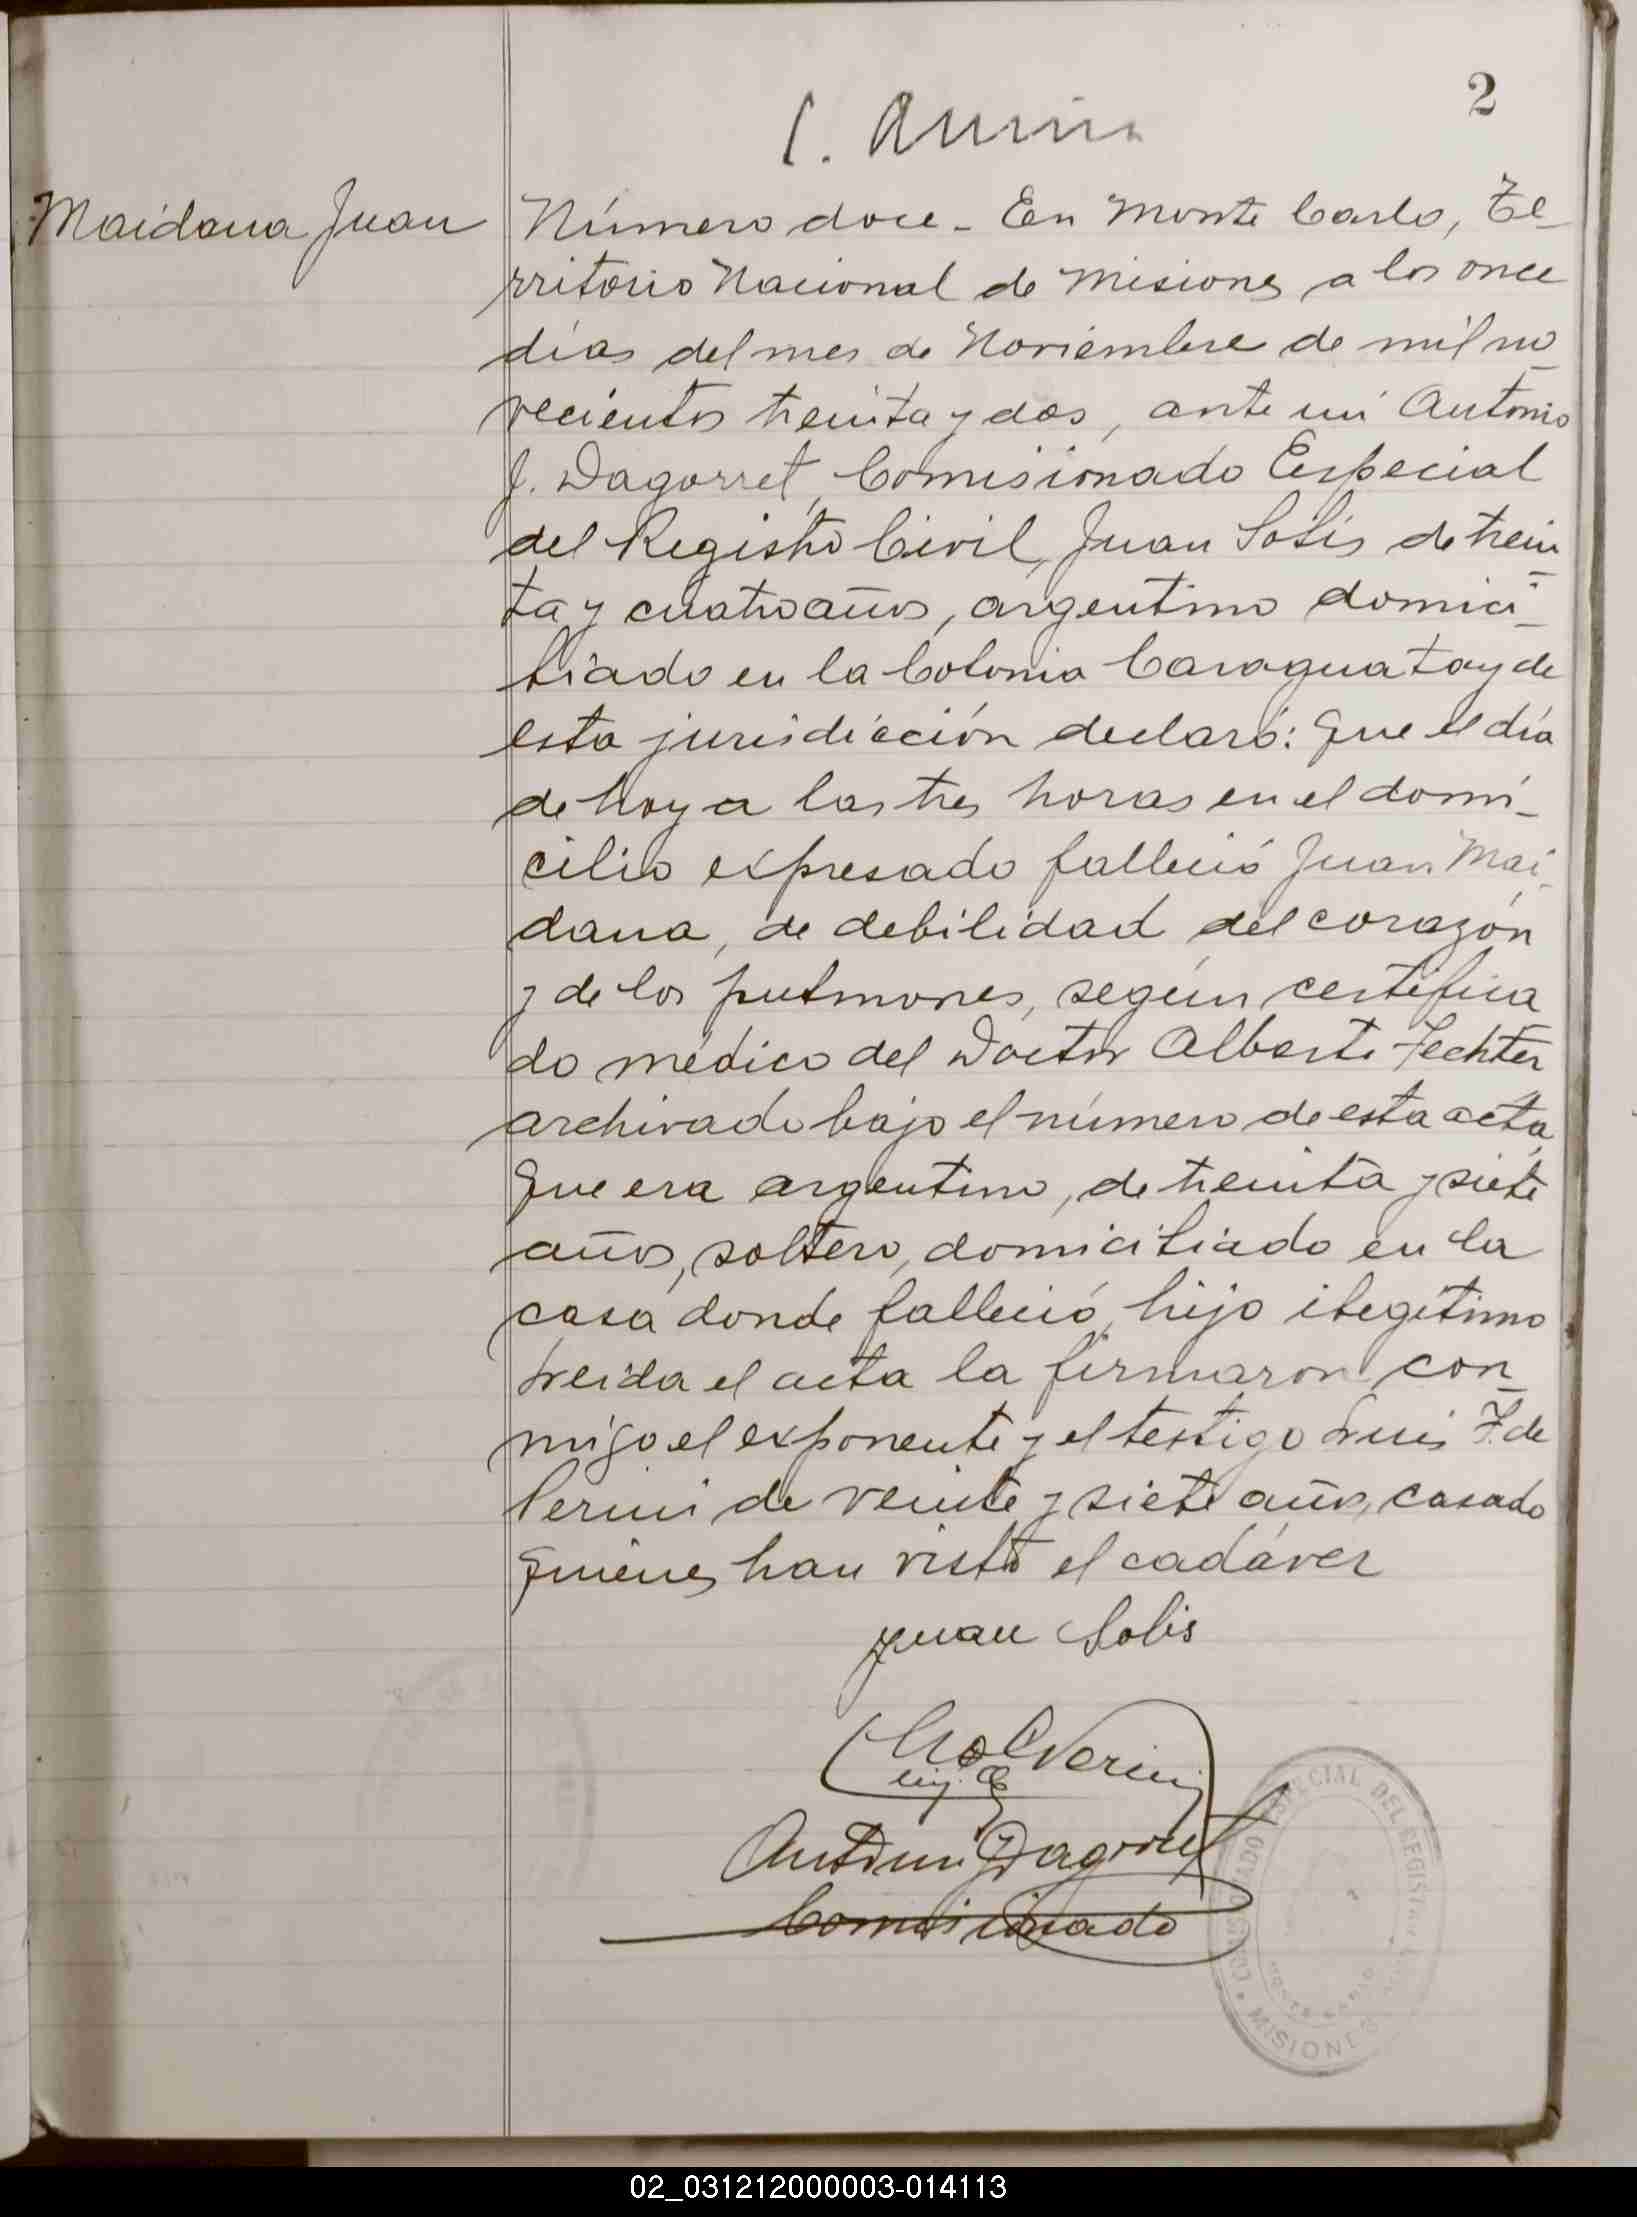 2
Maidana Juan
Número doce - En Monte Carlo, Te-
rritorio Nacional de Misiones a los once
días del mes de Noviembre de mil no-
vecientos treinta y dos, ante mí Antonio
J. Dagorret, Comisionado Especial
del Registro Civil, Juan Solis de trein-
ta y cuatro años, argentino domici-
liado en la Colonia Caraguatay de
esta jurisdicción declaró: Que el día
de hoy a las tres horas en el domi-
cilio expresado falleció Juan Mai-
dana, de debilidad del corazón
y de los pulmones, según certifica
do médico del Doctor Alberto Fechter
archivado bajo el número de esta acta,
Que era argentino, de treinta y siete
años, soltero, domiciliado en la
casa donde falleció, hijo ilegítimo
Leida el acta la firmaron con-
migo el exponente y el testigo Luis F. de
Perini de veinte y siete años, casado
Quienes han visto el cadáver
Juan Solis
Antonio J Dagorret
Comisionado
COMISIONADO ESPECIAL DEL REGISTRO CIVIL
MONTE CARLO
MISIONES
02_031212000003-014113